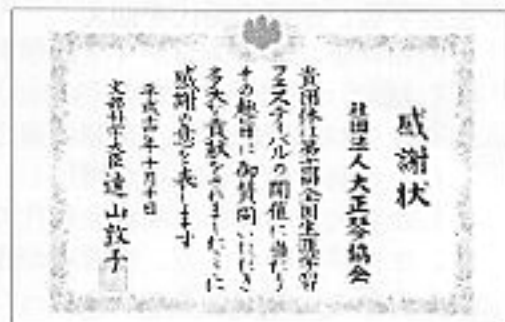 感謝状
社団法人大正琴協会
貴団体は第回全国生涯学習
フェスティバルの開催に当たり
その趣旨に御賛同いただき
多大な貢献をされましたことに
感謝の意を表します
平成年十月十日
文部科学大臣 遠山敦子